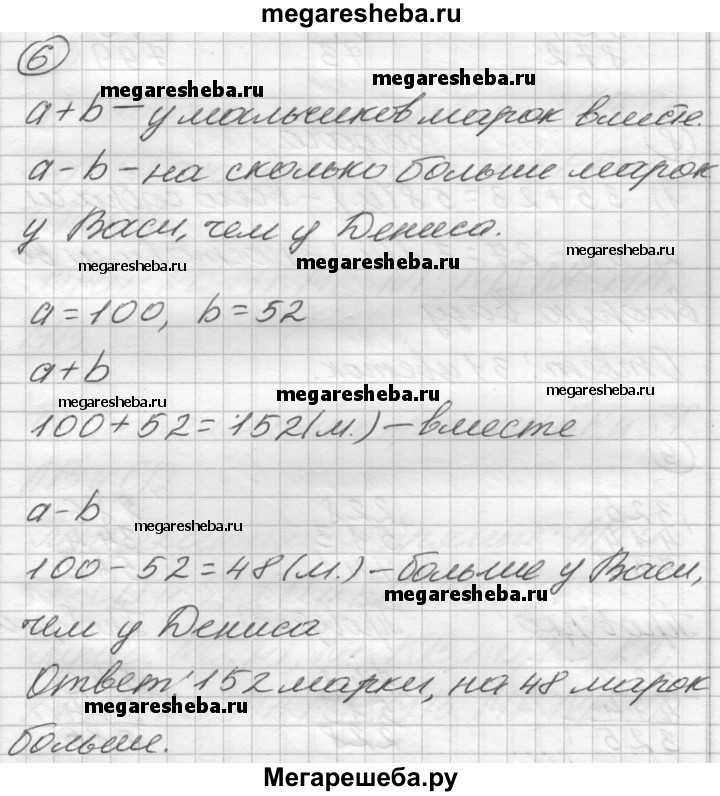 megaresheba.ru
6
megaresheba.ru megaresheba.ru
a+b – у мальчиков марок вместе.
a-b – на сколько больше марок
у Васи, чем у Дениса.
megaresheba.ru megaresheba.ru megaresheba.ru
a=100, b=52
a+b
megaresheba.ru megaresheba.ru megaresheba.ru
100+52=152(м.) – вместе
a-b
megaresheba.ru
100-52=48(м.) – больше у Васи,
megaresheba.ru
чем у Дениса
Ответ: 152 марки, на 48 марок
megaresheba.ru
больше.
Мегарешеба.ру